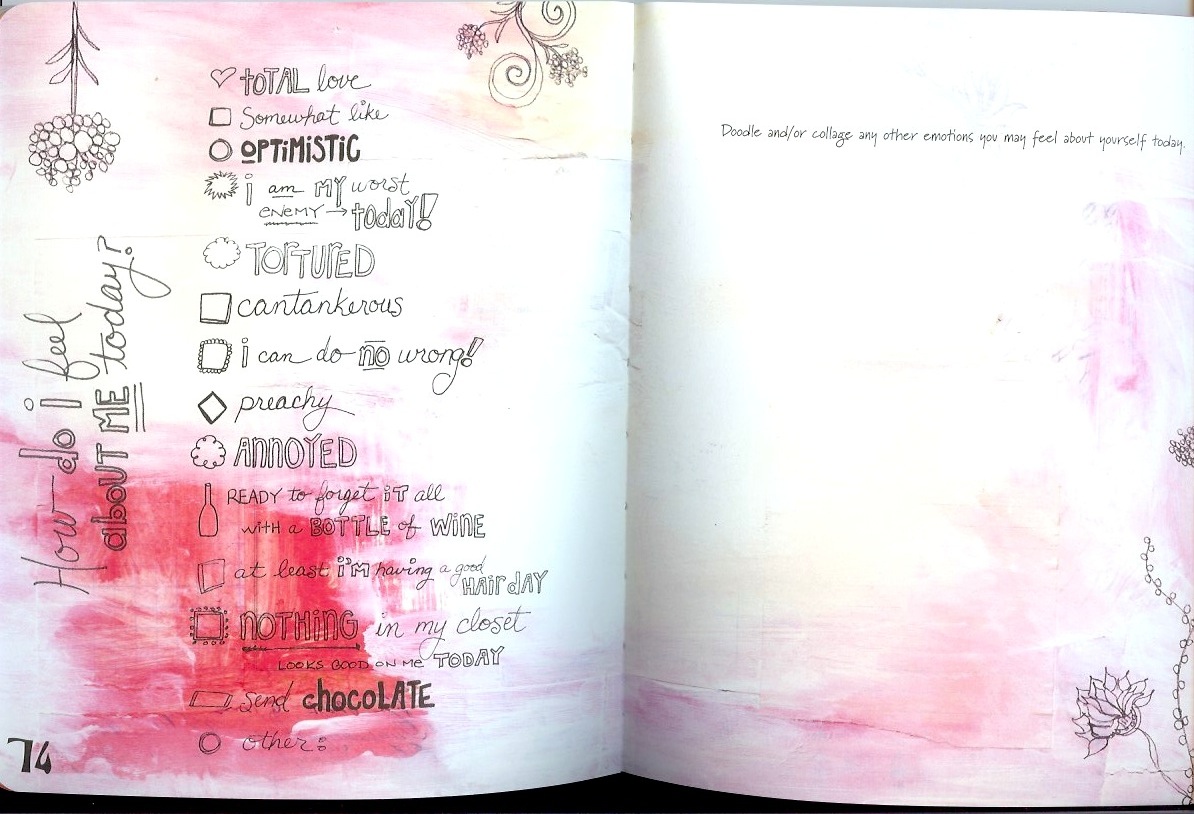 How do I feel
about ME today?
toTAL love
Somewhat like
OPTiMiSTiC
i am MY worst
eNeMY → todaY!
TORTURED
cantankerous
i can do no wrong!
preachy
ANNOYED
READY to forget iT all
with a BOTTLE of WiNE
at least i'M having a good
HAiR dAY
NOTHiNG in my closet
LOOKS GOOD ON Me TODAY
Send chocoLATE
other:
74
Doodle and/or collage any other emotions you may feel about yourself today.